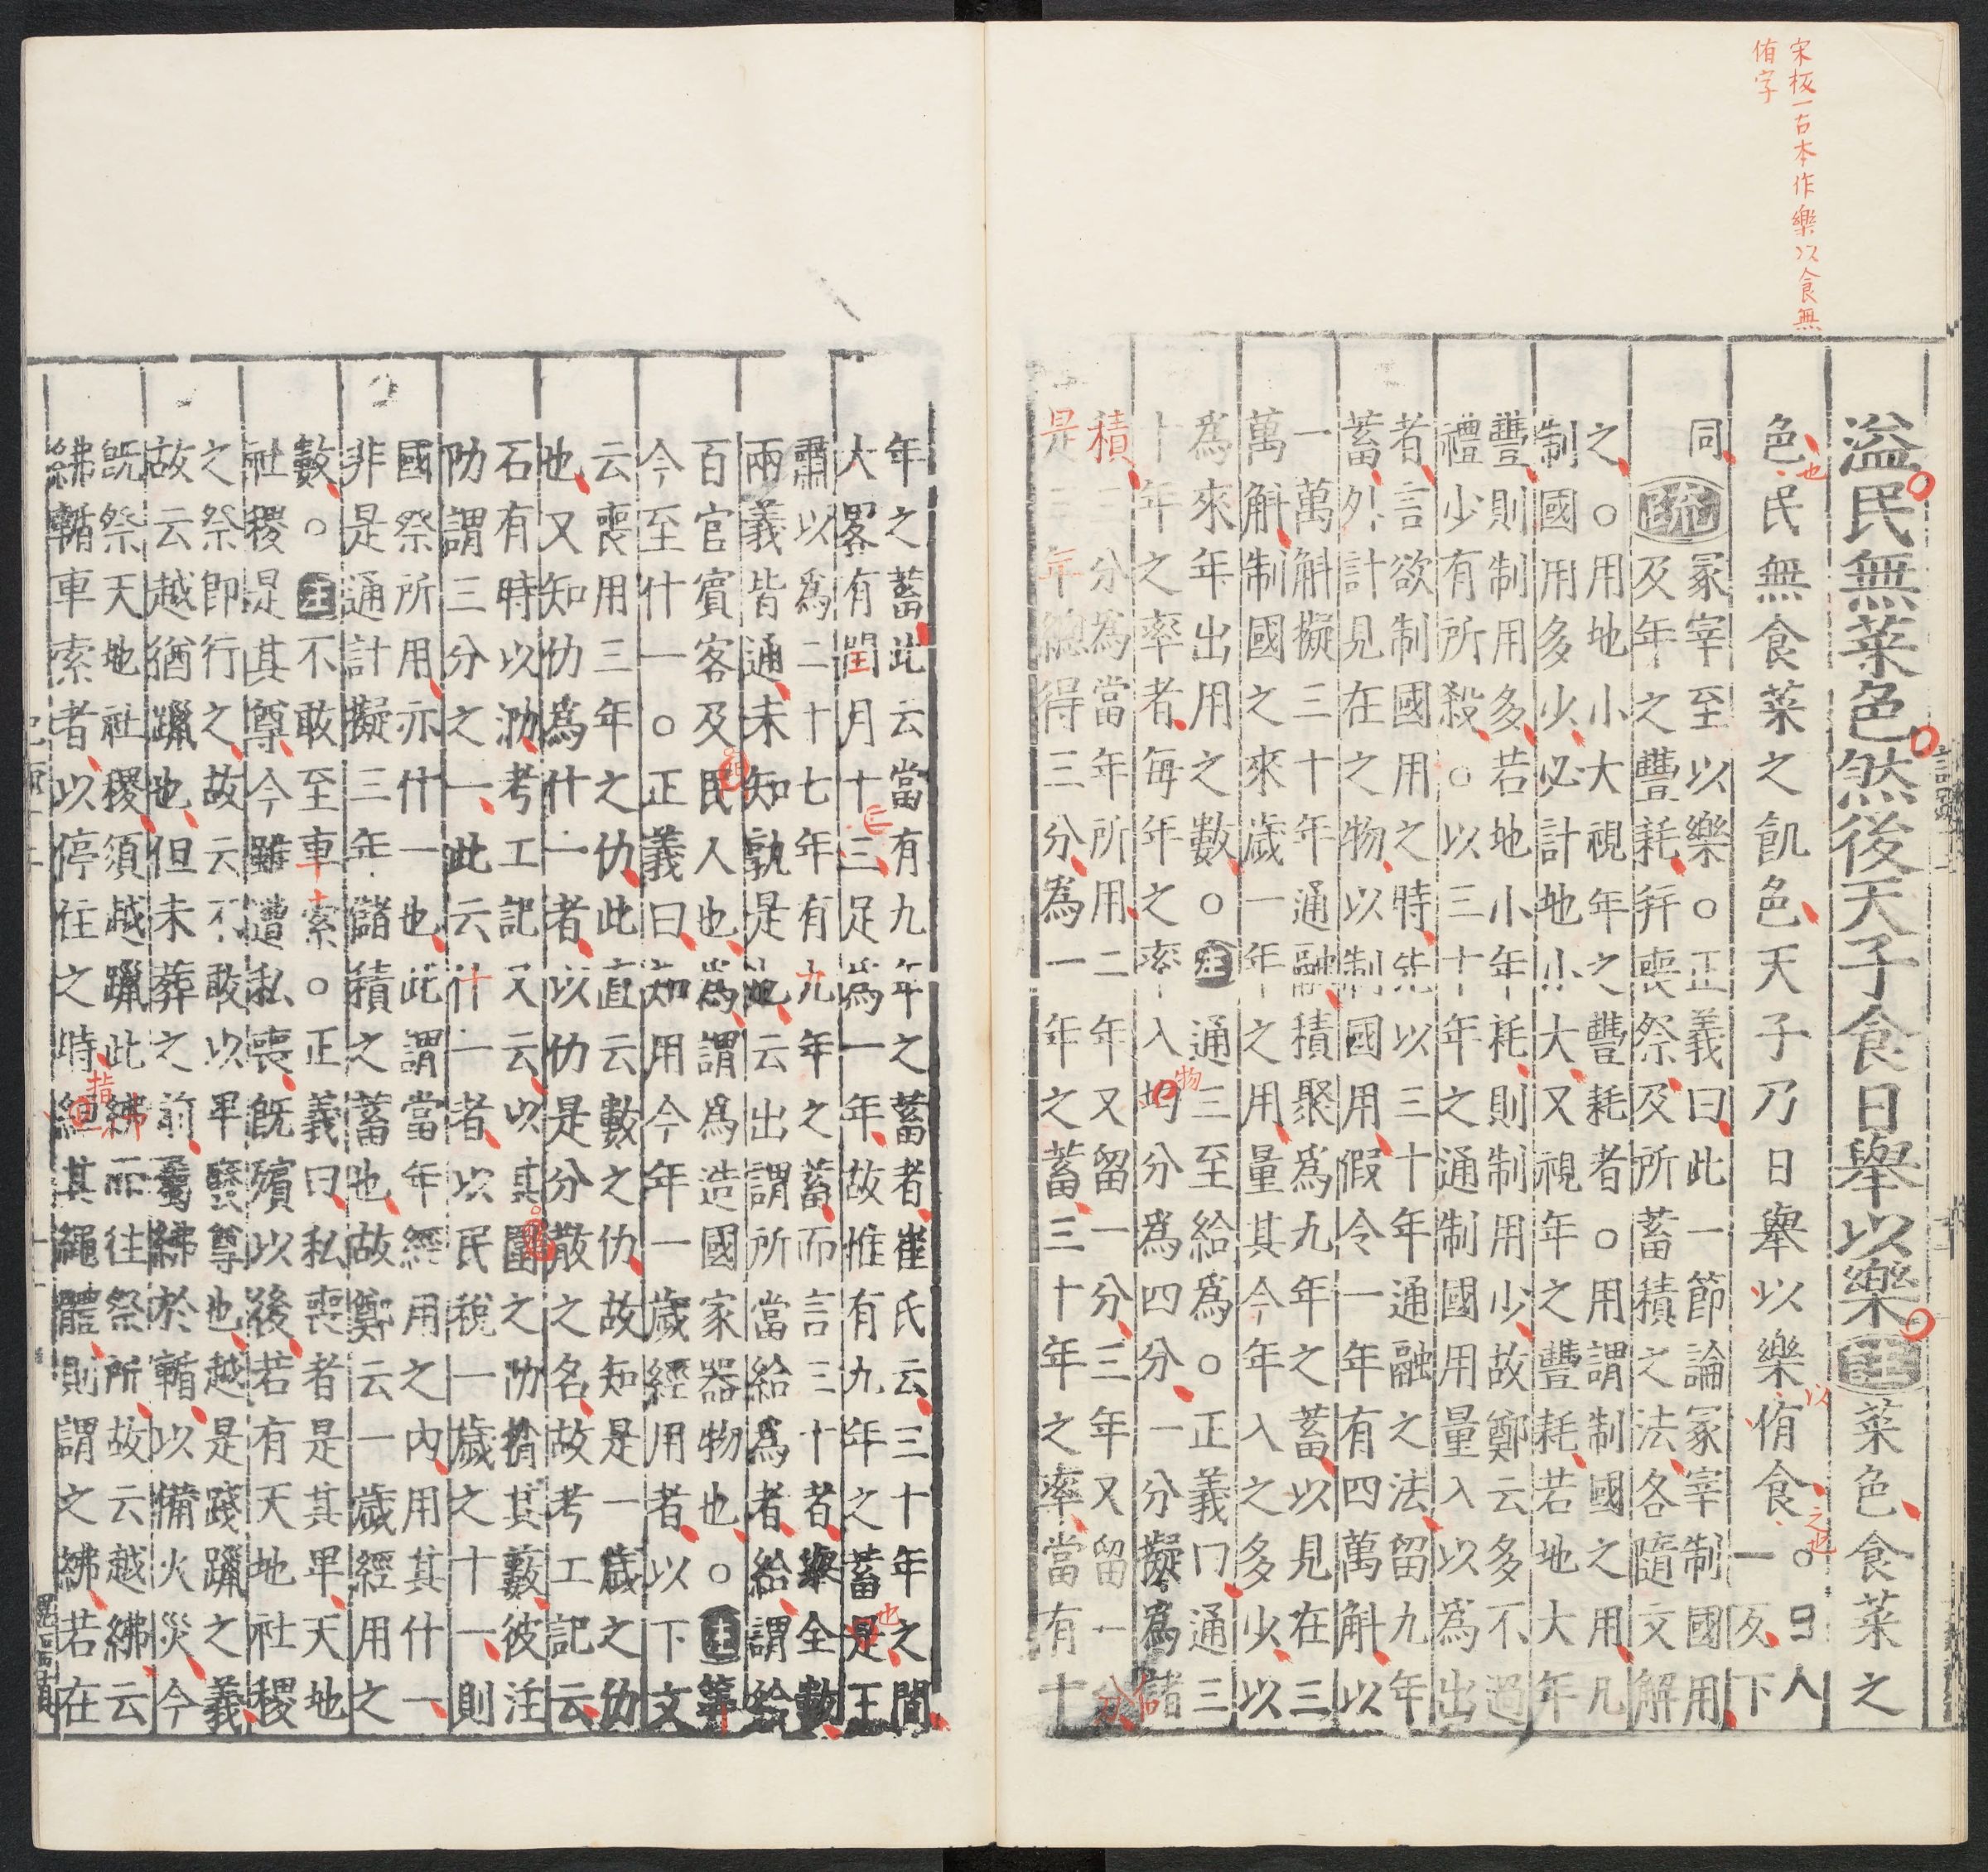 宋板一古本作樂以食無
侑字
溢民無菜色然後天子食日舉以樂註菜色食菜之
色民無食菜之飢色天子乃日舉以樂侑食○日人
一反下
同
疏冢宰至以樂○正義曰此一節論冢宰制國用
及年之豐耗并喪祭及所蓄積之法各隨文解
之○用地小大視年之豐耗者○用謂制國之用凡
制國用多少必計地小大又視年之豐耗若地大年
豐則制用多若地小年耗則制用少故鄭云多不過
禮少有所殺○以三十年之通制國用量入以為出
者言欲制國用之時先以三十年通融之法留九年
蓄外計見在之物以制國用假令一年有四萬斛以
一萬斛擬三十年通融積聚為九年之蓄以見在三
萬斛制國之來歲一年之用量其今年入之多少以
爲來年出用之數○註通三至給爲○正義曰通三
十年之率者每年之率入均分爲四分一分擬爲儲
積三分為當年所用二年又留一分三年又留一分
是三年總得三分為一年之蓄三十年之率當有十
年之蓄此云當有九年之蓄者崔氏云三十年之間
大畧有閏月十三足爲一年故惟有九年之蓄是王
肅以為二十七年有九年之蓄而言三十者舉全數
兩義皆通未知孰是也云出謂所當給爲者給謂給
百官賓客及民人也爲謂爲造國家器物也○註筭
今至什一○正義曰知用今年一歲經用者以下文
云喪用三年之仂此直云數之仂故知是一歲之仂
也又知仂爲什一者以仂是分散之名故考工記云
石有時以泐考工記又云以其圍之仂捎其藪彼注
仂謂三分之一此云什一者以民稅一歲之十一則
國祭所用亦什一也此謂當年經用之內用其什一
非是通計擬三年儲積之蓄也故鄭云一歲經用之
數○註不敢至車索○正義曰私喪者是其卑天地
社稷是其尊今雖遭私喪既殯以後若有天地社稷
之祭即行之故云不敢以卑廢尊也越是踐躐之義
故云越猶躐也但未葬之前屬紼於輴以備火災今
旣祭天地社稷須越躐此紼而往祭所故云越紼云
紼輴車索者以停住之時紲其繩體則謂之紼若在